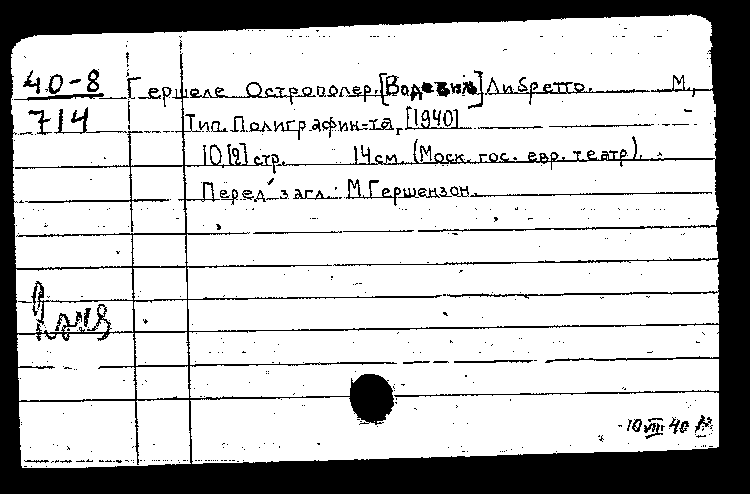 40-8 Гершеле Острополер. [Водевиль] Либретто. М.,
714 Тип. Полиграфин-та, [1940]
10,[2] стр. 14 см. (Моск. гос. евр. театр).
Перед загл.: М. Гершензон.
10 VIII 40